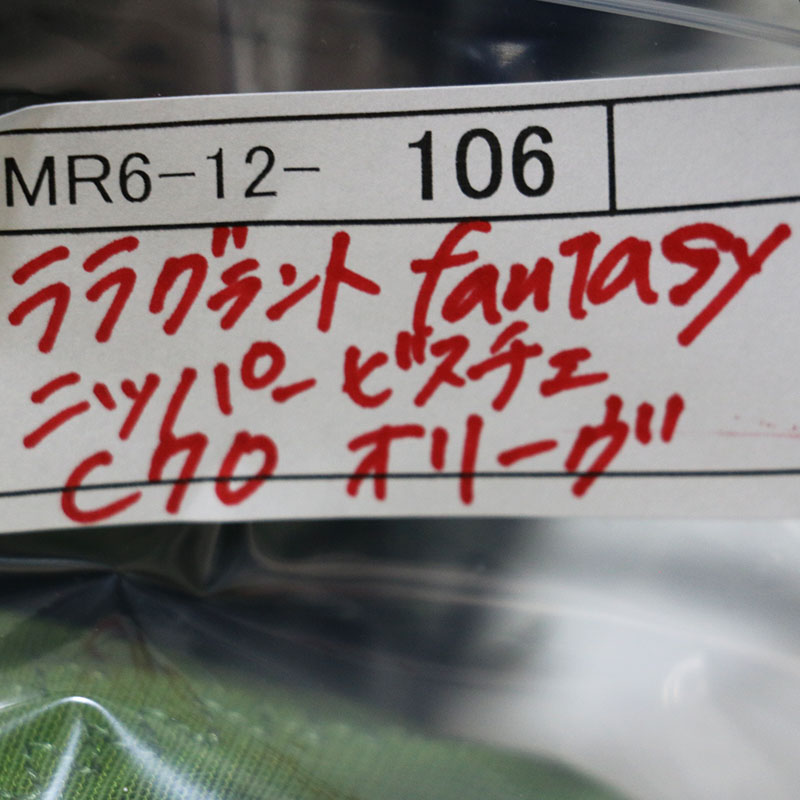 MR6-12- 106
ララヴラント fantasy
ニッパー ビスチェ
C70 オリーヴ